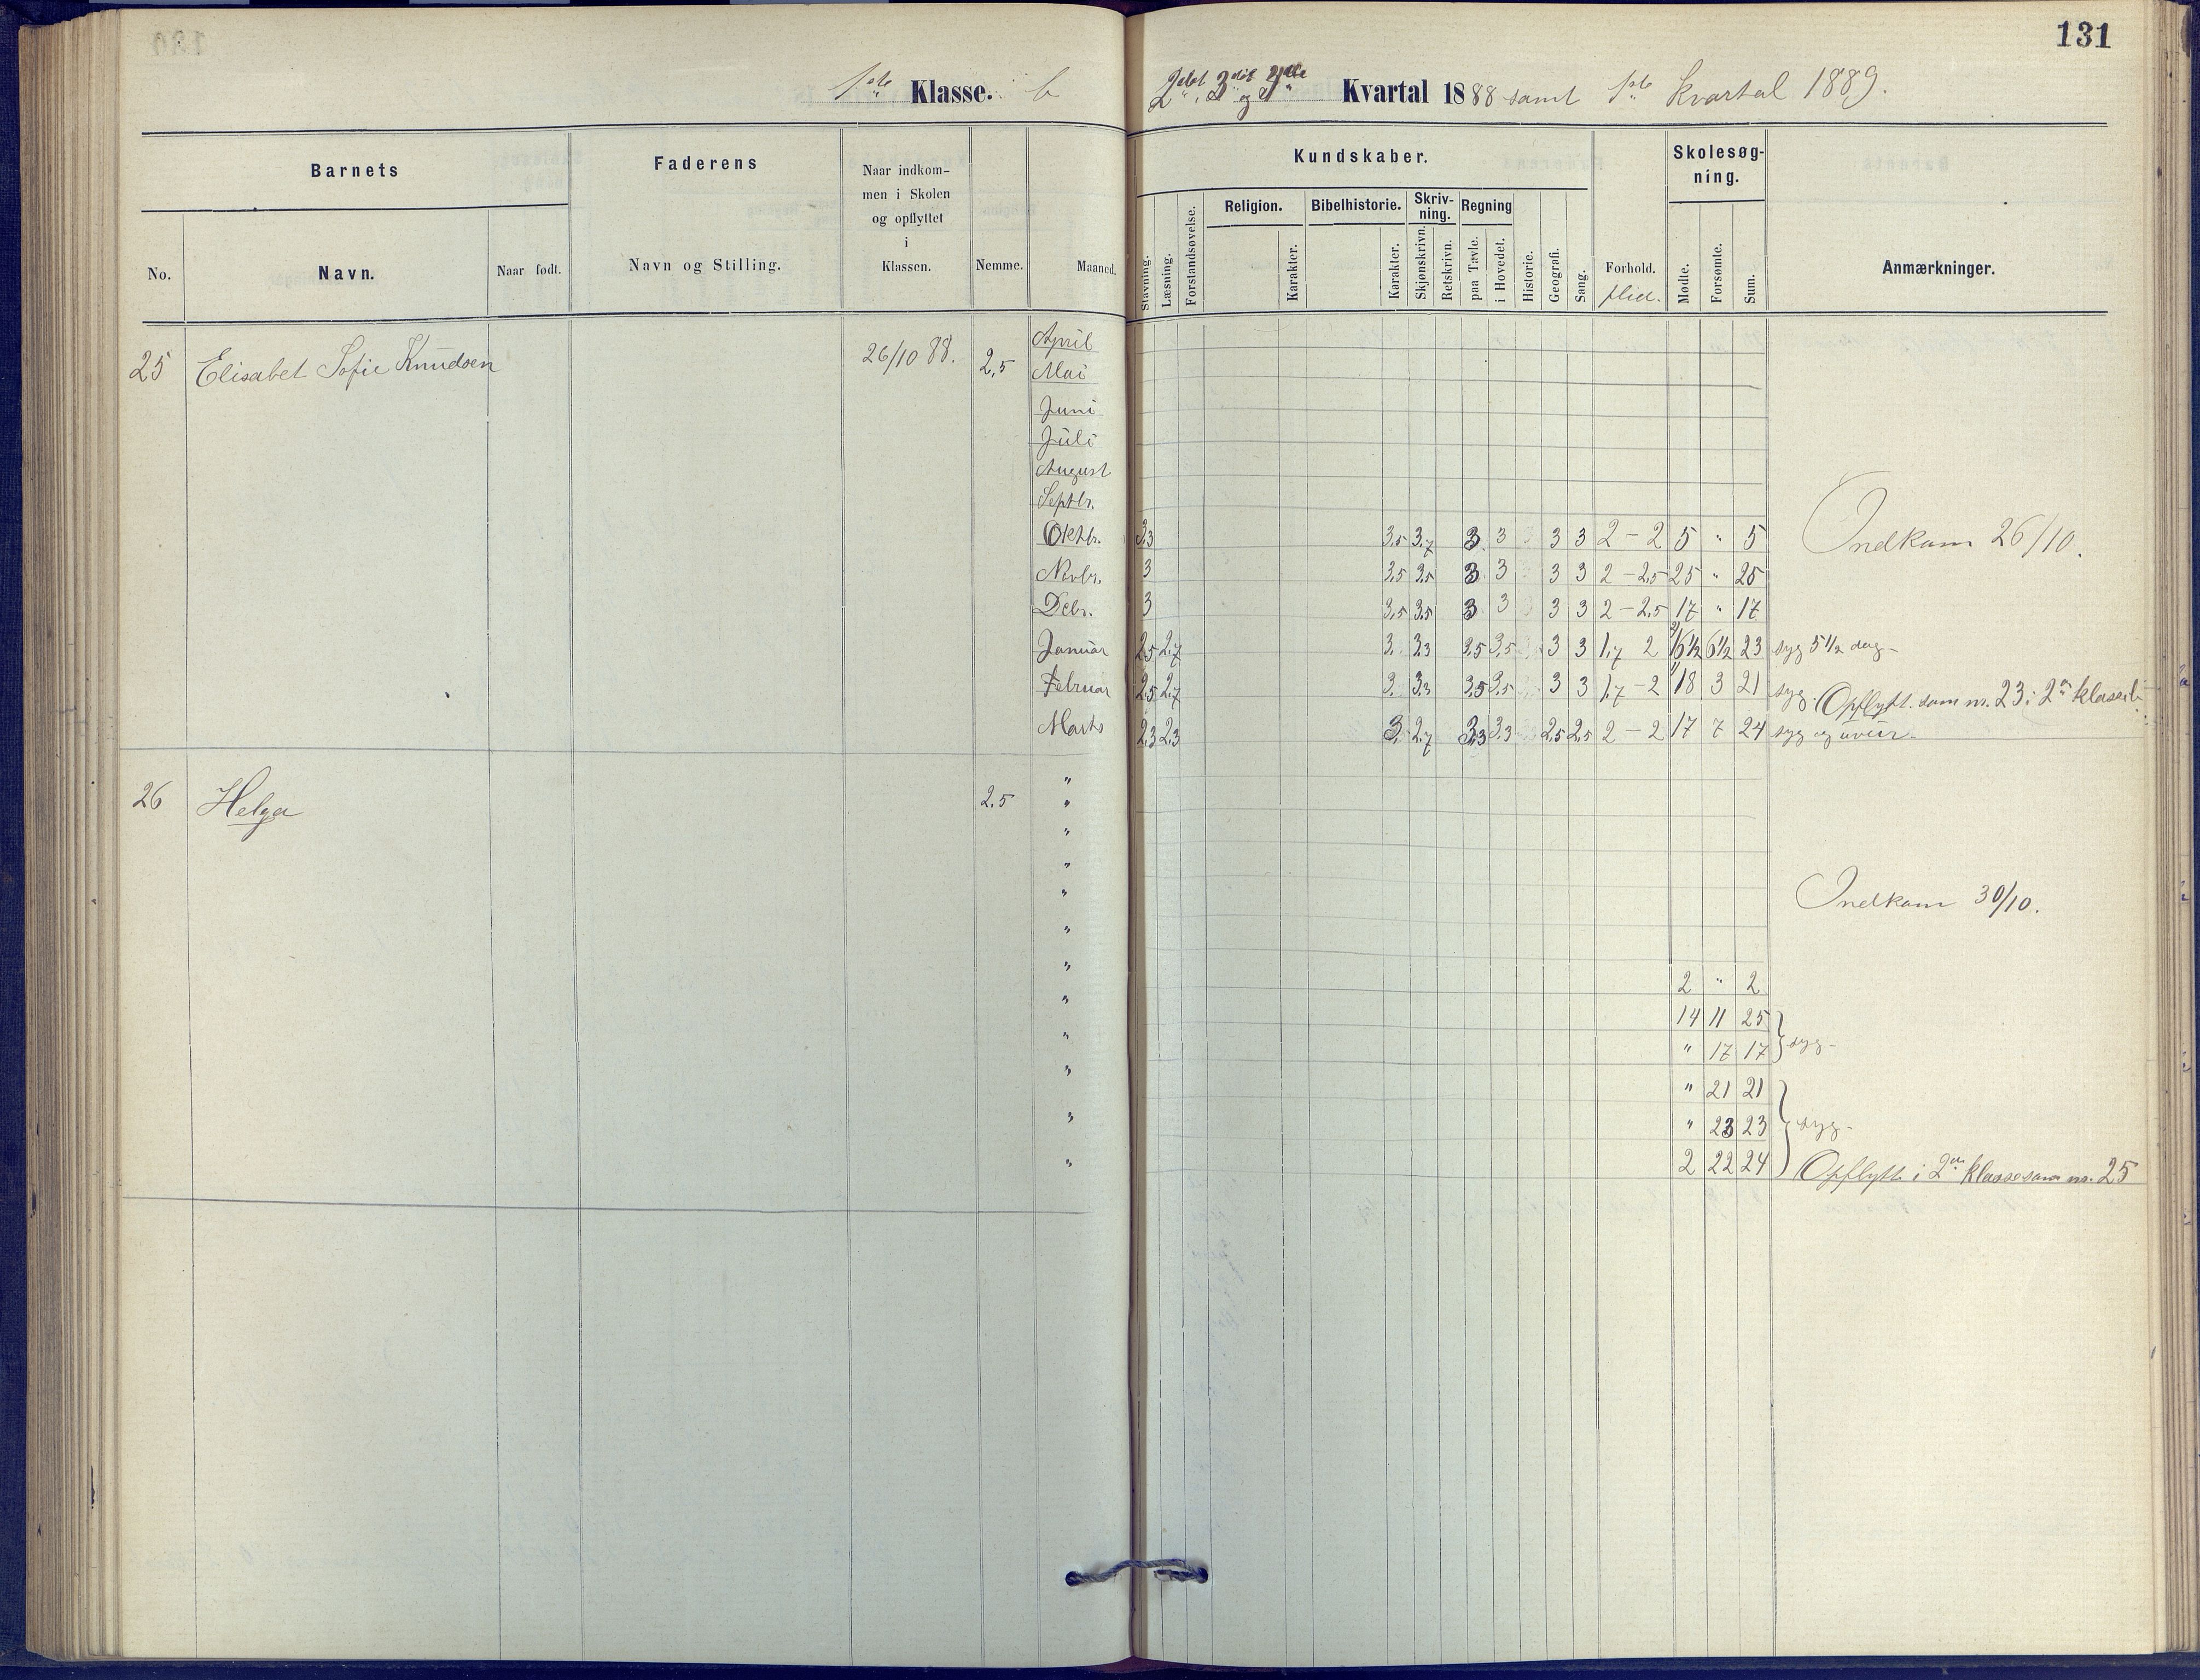 131
1ste Klasse. b 2det, 3die og 4de Kvartal 1888 samt 1ste Kvartal 1889.
Barnets Faderens Naar indkom-
men i Skolen
og opflyttet
i
Klassen. Nemme. Maaned.
No. Navn. Naar født. Navn og Stilling.
Kundskaber. Skolesøg-
ning.
Religion. Bibelhistorie. Skriv-
ning. Regning
Stavning. Læsning. Forstandsøvelse. Karakter. Karakter. Skjønskrivn. Retskrivn. paa Tavle. i Hovedet. Historie. Geografi. Sang. Forhold. Mødte. Forsømte. Sum. Anmærkninger.
flid.
25 Elisabet Sofie Knudsen 26/10 88. 2,5
April
Mai
Juni
Juli
August
Septbr.
Oktbr. 3,3 3,5 3,7 3 3 3 3 2 - 2 5 " 5 Indkom 26/10.
Novbr. 3 3,5 3,5 3 3 3 3 2 - 2,5 25 " 25
Debr. 3 3,5 3,5 3 3 3 3 2 - 2,5 17 " 17
Januar 2,5 2,7 3 3,3 3,5 3,5 3 3 1,7 2 16 1/2 6 1/2 23 syg 5 1/2 dag-
Februar 2,5 2,7 3 3,3 3,5 3,5 3 3 1,7 - 2 18 3 21 syg. Opflytt. som nr. 23 i 2den klasse b.
Marts 2,3 2,3 3 2,7 3,3 3,3 2,5 2,5 2 - 2 17 7 24 syg og uveir.
26 Helga 2,5
"
"
"
"
"
" Indkom 30/10.
" 2 " 2
" 14 11 25
" " 17 17 syg-
" " 21 21
" " 23 23 syg-
" 2 22 24 Opflytt i 2den klasse som nr. 25